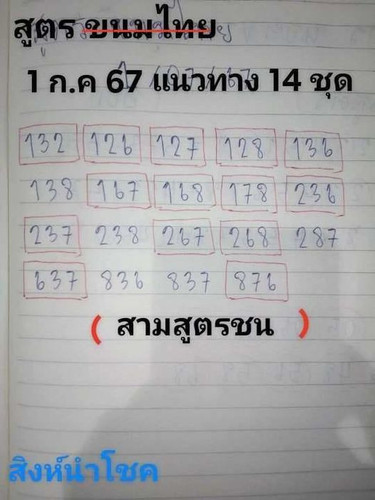 สูตร ขนมไทย
1 ก.ค 67 แนวทาง 14 ชุด
132 126 127 128 136
138 167 168 178 236
237 238 267 268 287
637 836 837 876
( สามสูตรชน )
สิงห์นำโชค